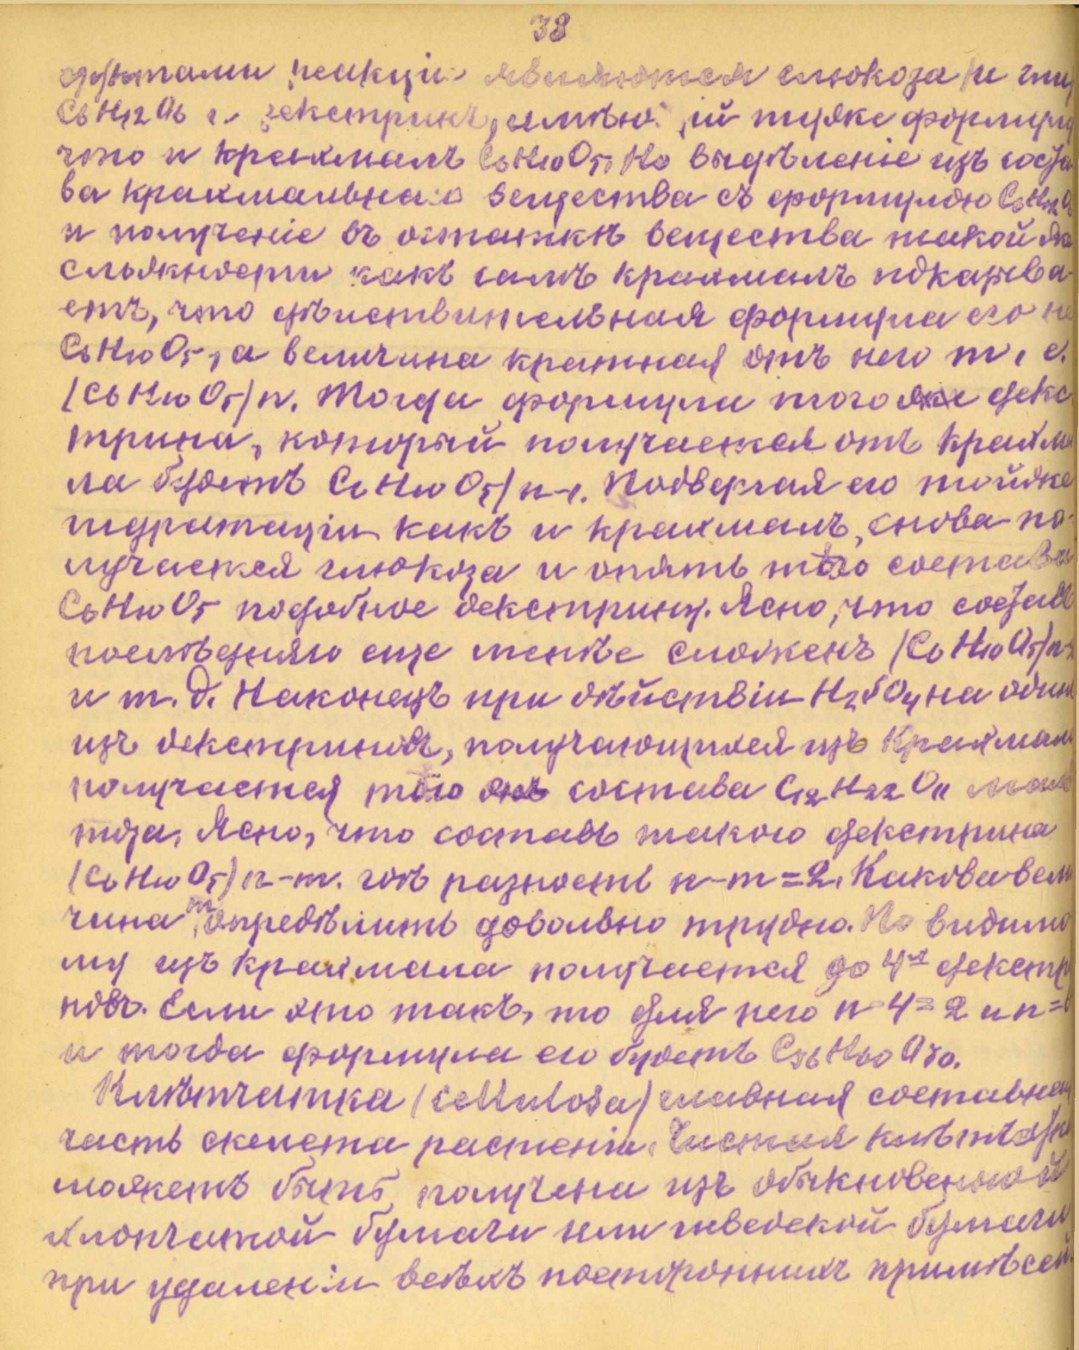 38
реакціи являются глюкоза и
C6H12O6 и декстринъ, имѣющій туже формулу
что и крахмалъ C6H10O5. Но выдѣленіе изъ
ва крахмальнаго вещества съ формулою C6H12O6
и полученіе въ остаткѣ вещества такой же
сложности какъ самъ крахмалъ показыва-
етъ, что дѣйствительная формула его не
C6H10O5, а величина кратная отъ него т. е.
(C6H10O5)n. Тогда формула того же декс
трина, который получается отъ крахма
ла будетъ C6H10O5)n-1. Подвергая его той же
гидратаціи какъ и крахмалъ, снова по-
лучается глюкоза и опять тѣло состава
C6H10O5 подобное декстрину. Ясно, что составъ
послѣдняго еще менѣе сложенъ (C6H10O5)n-2
и т. д. Наконецъ при дѣйствіи H2SO4 на одинъ
изъ декстриновъ, получающихся изъ крахмала
получается тѣло состава C12H22O11
тоза. Ясно, что составъ такого декстрина
(C6H10O5)n-m. гдѣ разность n-m=2. Какова вели
чина m, опредѣлить довольно трудно. По видимо
му изъ крахмала получается до 4х декстри
новъ. Если это такъ, то для него n-4=2 и n=6
и тогда формула его будетъ C36H60O30.
Клѣтчатка (cellulosa) главная составная
часть скелета растеній. Чистая клѣтчатка
можетъ быть получена изъ обыкновенной
хлопчатой бумаги или шведской бумаги
при удаленіи всѣхъ постороннихъ примѣсей.